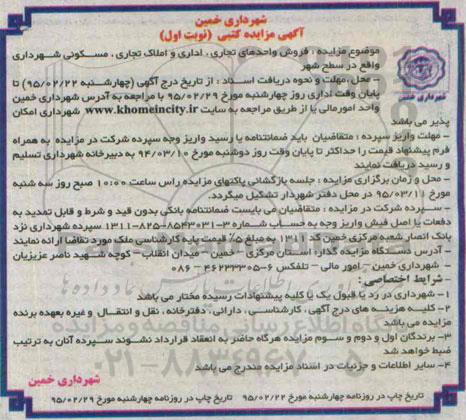 شهرداری خمین
آگهی مزایده کتبی (نوبت اول)
موضوع مزایده : فروش واحدهای تجاری ، اداری و املاک تجاری ، مسکونی شهرداری
واقع در سطح شهر
- محل ،مهلت و نحوه دریافت اسناد : از تاریخ درج آگهی (چهارشنبه ۹۵/۰۲/۲۲) تا
پایان وقت اداری روز چهارشنبه مورخ ۹۵/۰۲/۲۹ با مراجعه به آدرس شهرداری خمین
واحد امورمالی یا از طریق مراجعه به سایت www.khomeincity.ir شهرداری امکان
پذیر می باشد
- مهلت واریز سپرده : متقاضیان باید ضمانتنامه یا رسید واریز وجه سپرده شرکت در مزایده به همراه
فرم پیشنهاد قیمت را حداکثر تا پایان وقت روز دوشنبه مورخ ۹۴/۰۳/۱۰ به دبیرخانه شهرداری تسلیم
و رسید دریافت نمایند
- محل و زمان برگزاری مزایده : جلسه بازگشائی پاکتهای مزایده راس ساعت ۱۰:۰۰ صبح روز سه شنبه
مورخ ۹۵/۰۳/۱۱ در محل دفتر شهردار تشکیل میگردد.
- سپرده شرکت در مزایده : متقاضیان می بایست ضمانتنامه بانکی بدون قید و شرط و قابل تمدید به
دفعات یا اصل فیش واریز وجه به حساب شماره ۳-۸۵۴۳۰۳۱-۸۲۵-۱۳۱۱ سپرده شهرداری نزد
بانک انصار شعبه مرکزی خمین کد ۱۳۱۱ به مبلغ ۵٪ قیمت پایه کارشناسی ملک مورد تقاضا ارائه نمایند
- آدرس دستگاه مزایده گذار: استان مرکزی – خمین – میدان انقلاب – کوچه شهید ناصر عزیزیان
– شهرداری خمین – امور مالی – تلفکس ۶-۴۶۲۳۳۰۰۵ – ۰۸۶
- شرایط اختصاصی :
۱- شهرداری در رد یا قبول یک یا کلیه پیشنهادات رسیده مختار می باشد
۲- کلیه هزینه های درج آگهی ، کارشناسی ، دارائی ، دفترخانه ، نقل و انتقال و غیره بعهده برنده
مزایده می باشد
۳- برندگان اول و دوم و سوم مزایده هرگاه حاضر به انعقاد قرارداد نشوند سپرده آنان به ترتیب
ضبط خواهد شد
۴- سایر اطلاعات و جزئیات در اسناد مزایده مندرج می باشد
شهرداری خمین
تاریخ چاپ در روزنامه چهارشنبه مورخ ۹۵/۰۲/۲۲ تاریخ چاپ در روزنامه چهارشنبه مورخ ۹۵/۰۲/۲۹
شهرداری خمین